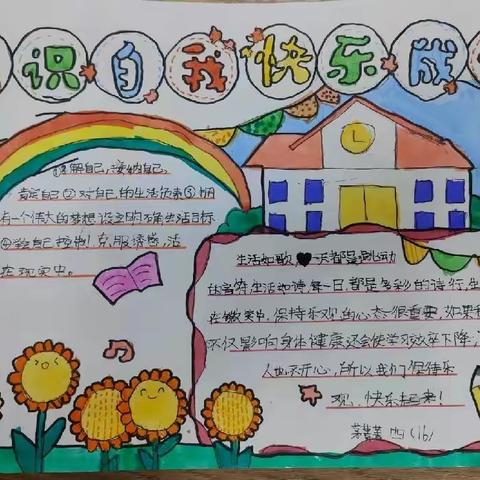 识自我快乐成
理解自己,接纳自己。
②对自己的生活负责③拥
有一个伟大的梦想设立明确生活目标
④致自己控制克服诱惑,活
在现实中。
生活如歌❤一天都是跳动
生活如诗每一日都是多彩的诗行,生
在微笑中,保持乐观的心态很重要,如果
不仅影响身体健康还会使学习效率下降,
人也不开心,所以我们保持乐
观、快乐起来!
四(16)